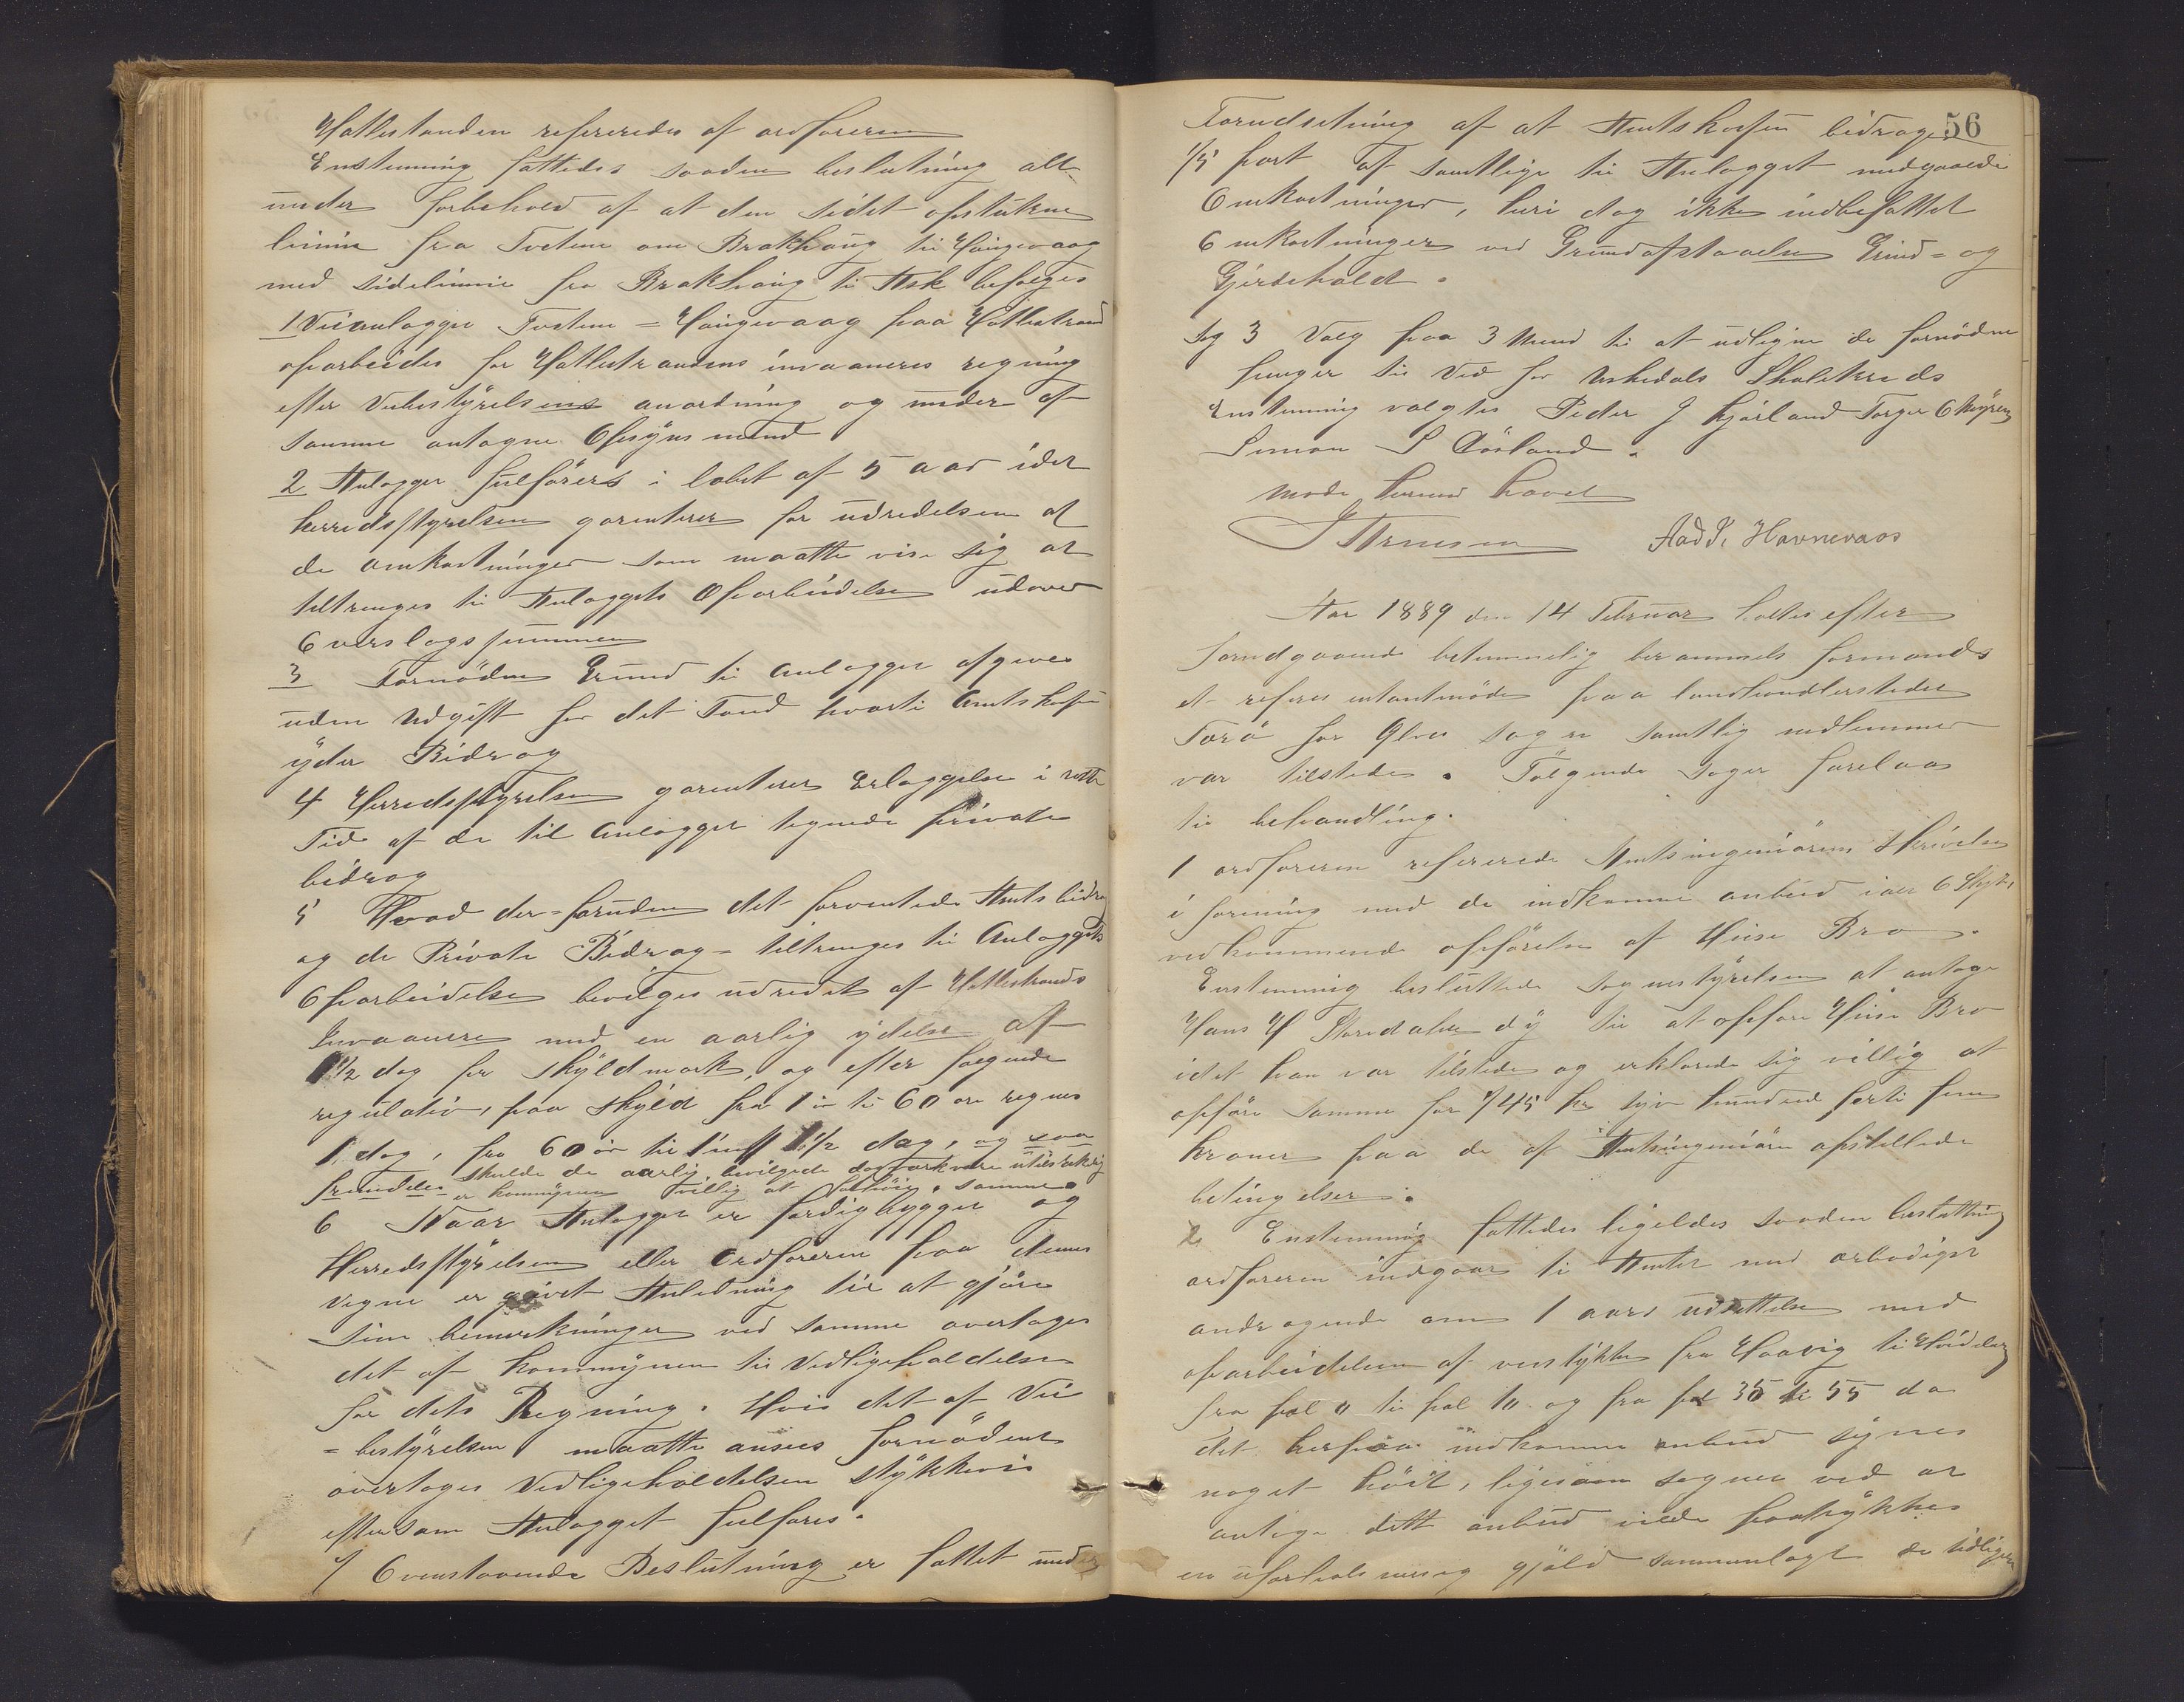 Hattestanden refereredes af ordføreren
Enstemmig fattedes saaden beslutning alt
under forbehold af at den sidst opstukne
linie fra Tveten om Brakhaug til Haugevaag
med sidelinie fra Brakhaug til Ask befølges
1 Veianlægget Tveten = Haugevaag paa Hattestrand
oparbeides for Hattestrandens invaaneres regning
efter Veibestyrelsens anordning og under af
samme antagne Opsynsmend
2 Anlægget fulføres i løbet af 5 aar idet
herredsstyrelsen garenterer for udredelsen af
de omkostninger som maatte vise sig at
tiltrenges til Anlæggets Oparbeidelse udover
Overslagssummen
3 Fornøden Grund til anlægget afgives
uden Udgift for det Fond hvortil Amtskassen
yder Bidrag
4 Herredsstyrelsen garenterer Erlæggelse i rette
Tid af de til Anlægget tegnede private
bidrag
5 Hvad der = foruden det forventede Amts bidrag
og de Private Bidrag = tiltrenges til Anlæggets
Oparbeidelse bevilges udredet af Hattestrands
Invaanere med en aarlig ydelse af
1½ dag pr skyldmark, og efter følgende
regulativ, paa skyld fra 1 ør til 60 øre regnes
1 dag, fra 60 ør til 1 mk 1½ dag, og saa
fremdeles skulde de aarlig bevilgede dagsverk være utilstrekkelig
er kommunen villig at forhøie samme.
6 Naar Anlægget er færdigbygget og
Herredsstyrelsen eller Ordføreren paa dennes
vegne er givet Anledning til at gjøre
sine bemerkninger ved samme overtages
det af kommunen til Vedligeholdelse
for dets Regning. Hvis det af Vei
= bestyrelsen maatte ansees fornødent
overtages Vedligeholdelsen stykkevis
eftersom Anlægget fulføres.
7 Ovenstaaende Beslutning er fattet under
56
Forudsetning af at Amtskassen bidrager
1/5 part af samtlige til Anlægget medgaaede
Omkostninger, heri dog ikke indbefattet
Omkostninger ved Grundafstaaelse Grind = og
Gjerdehold.
Sag 3 Valg paa 3 Mend til at udligne de fornødne
penger til Ved for Uskedals Skolekreds
Enstemmig valgtes Peder J Kjærland Torger O Myren
Simon S Døsland.
Møde hermed hævet
J Arnesen Aad P. Havnevaos
Aar 1889 den 14 Februar holtes efter
forudgaaende betimmelig berammels formands
et representantmøde paa landhandlerstedet
Torø for Ølves sogn samtlig medlemmer
var tilstede. Følgende sager forelaa
til behandling.
1 ordføreren refererede Amtsingeniørens Skrivelse
i forening med de indkomne anbud ialt 6 Styk,
vedkommende opførelse af Huse Bro.
Enstemmig besluttede Sognestyrelsen at antage
Hans H dy til at opføre Huse Bro
idet han var tilstede og erklærede sig villig at
opføre samme for 745 kr syv hundred førti fem
kroner paa de af Amtsingeniøren opstillede
betingelser.
2 Enstemmig fattedes ligeledes saaden beslutning
ordføreren indgaar til Amtet med ærbødigst
andragende om 1 aars udsettelse med
oparbeidelsen af veistykket fra Haavig til
fra pæl 0 til pæl 10 og fra pæl 35 til 55 da
det herpaa indkomne anbud synes
noget høit, ligesom sognet ved at
antage dette anbud vilde paatrykkes
en uforholsmesig gjæld sammenlagt de tidligere